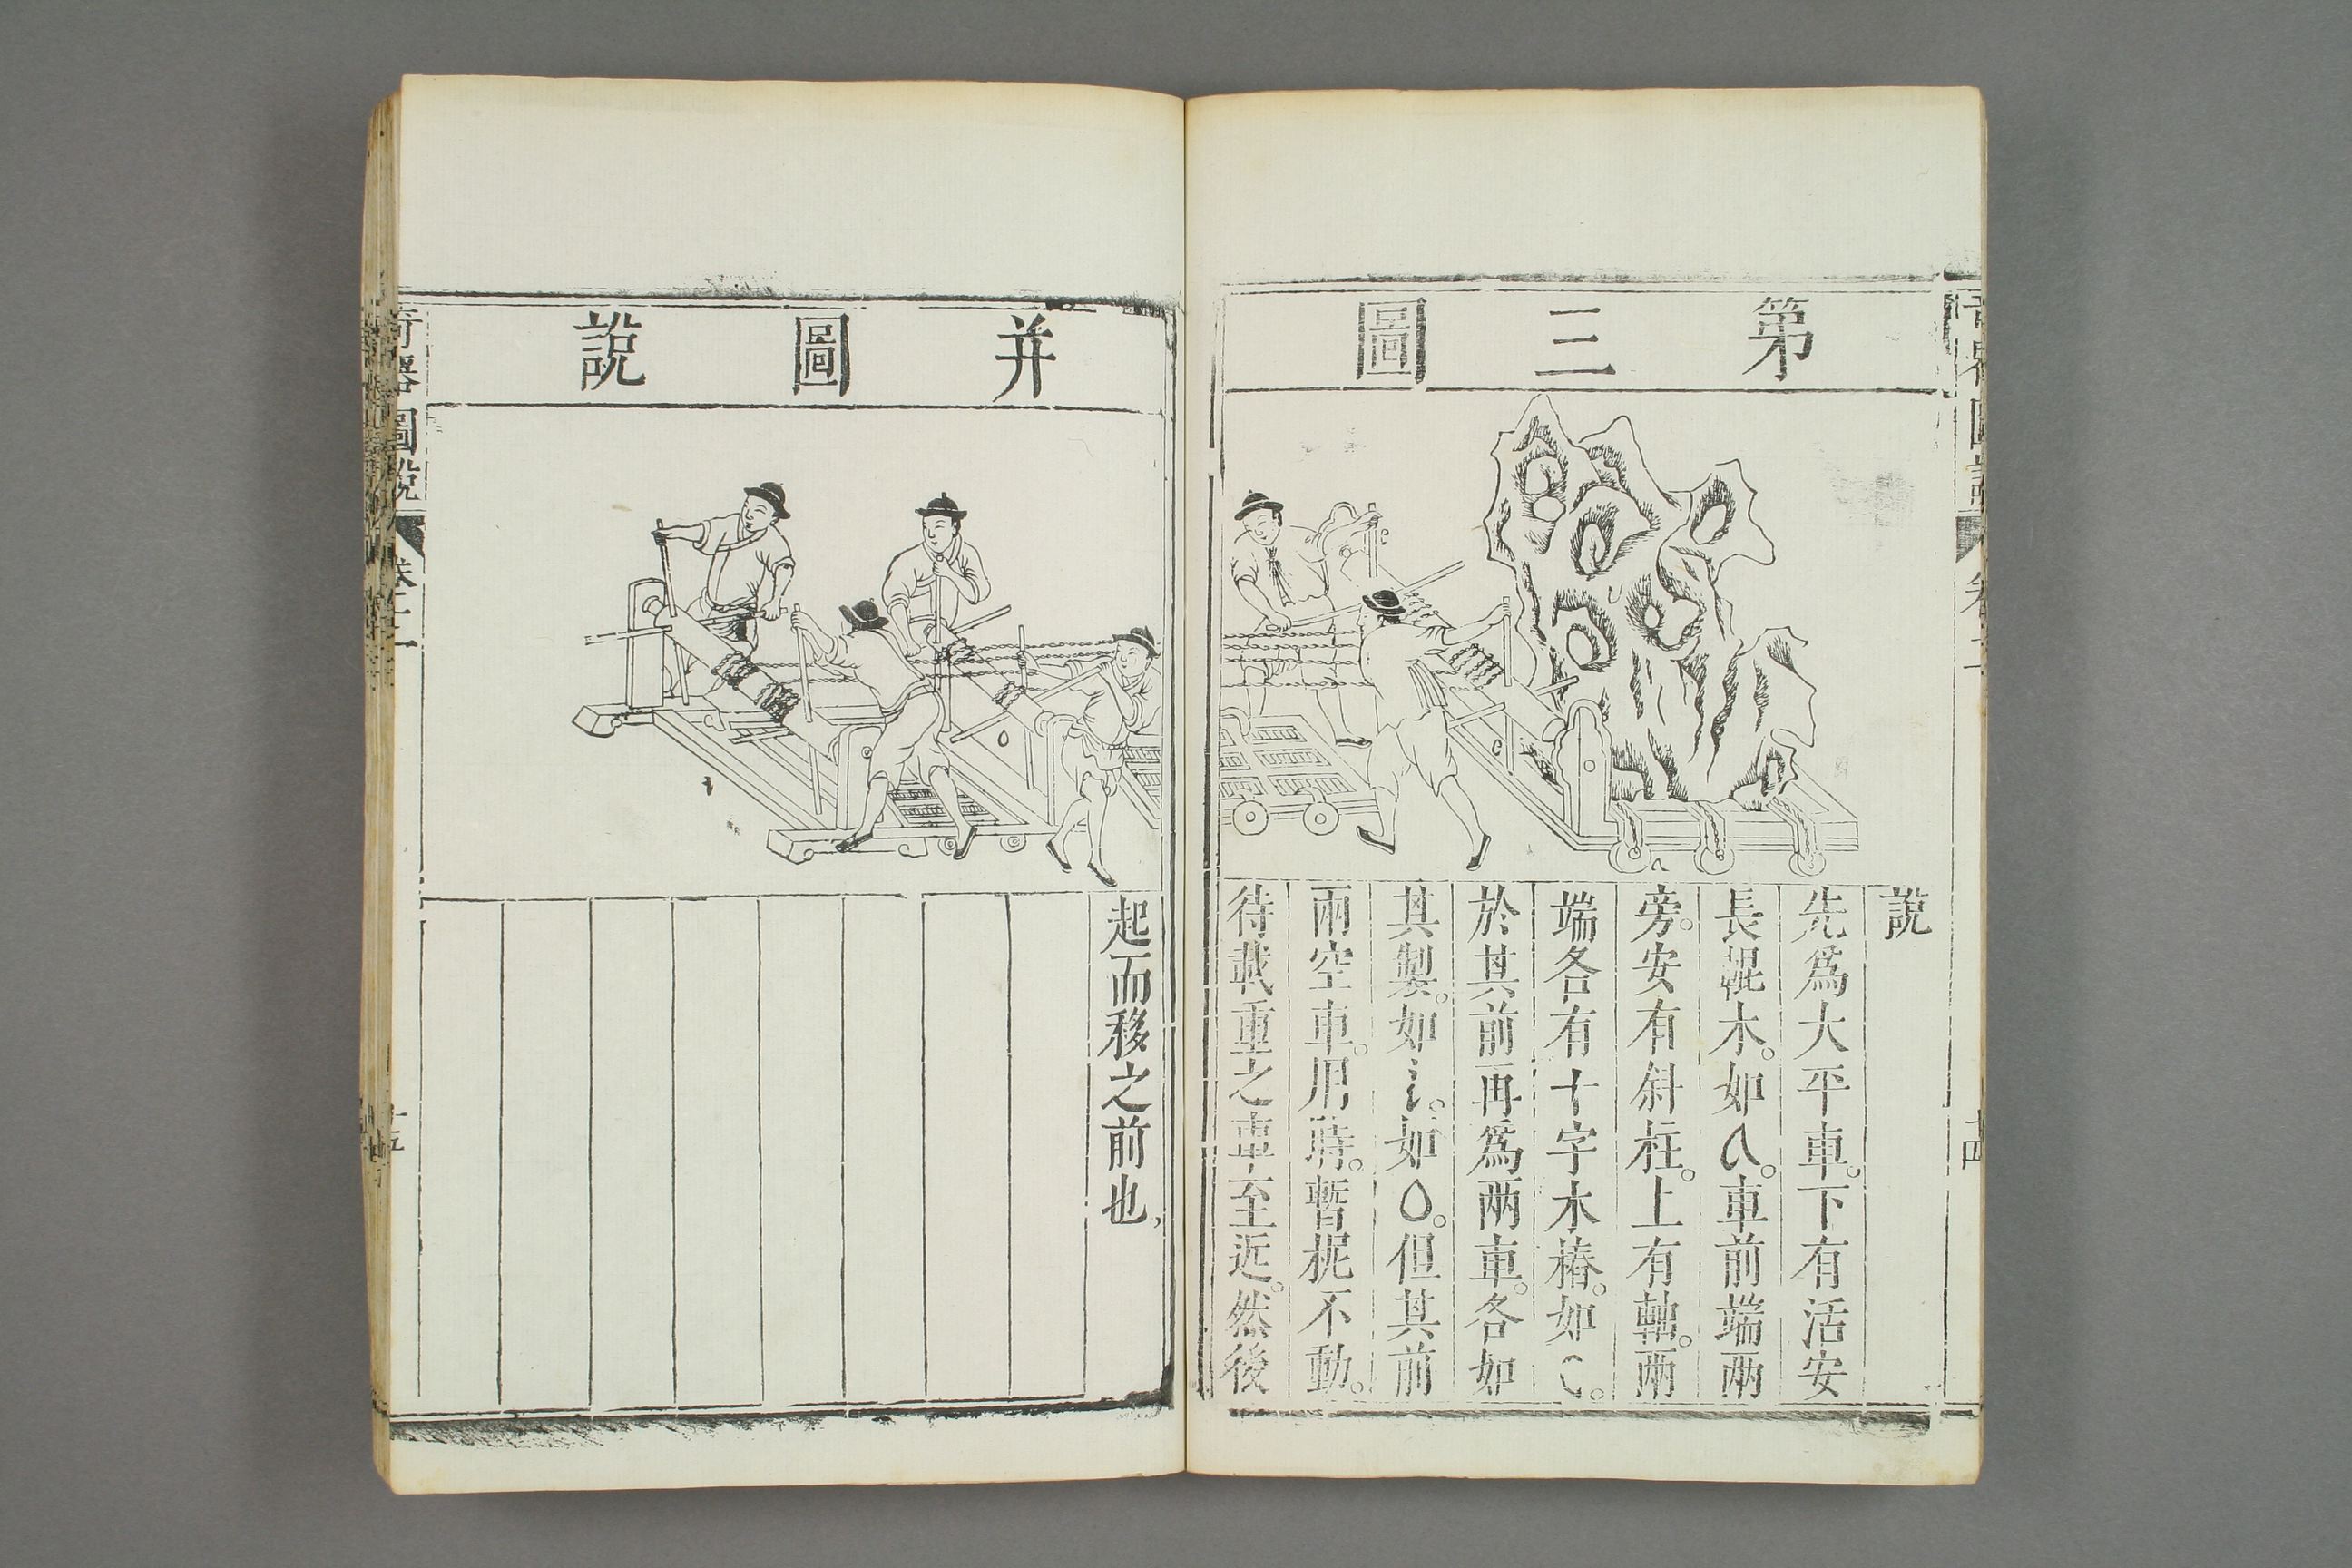 第三圖
說
先爲大平車。下有活安
長輥木。如ᕱ。車前端兩
旁。安有斜柱。上有軸。兩
端各有十字木樁。如
於其前再爲兩車。各如
其製。如。如。但其前
兩空車。用時。暫抳不動。
待載重之車至近。然後
并圖說
起而移之前也
奇器圖說
卷二
十五